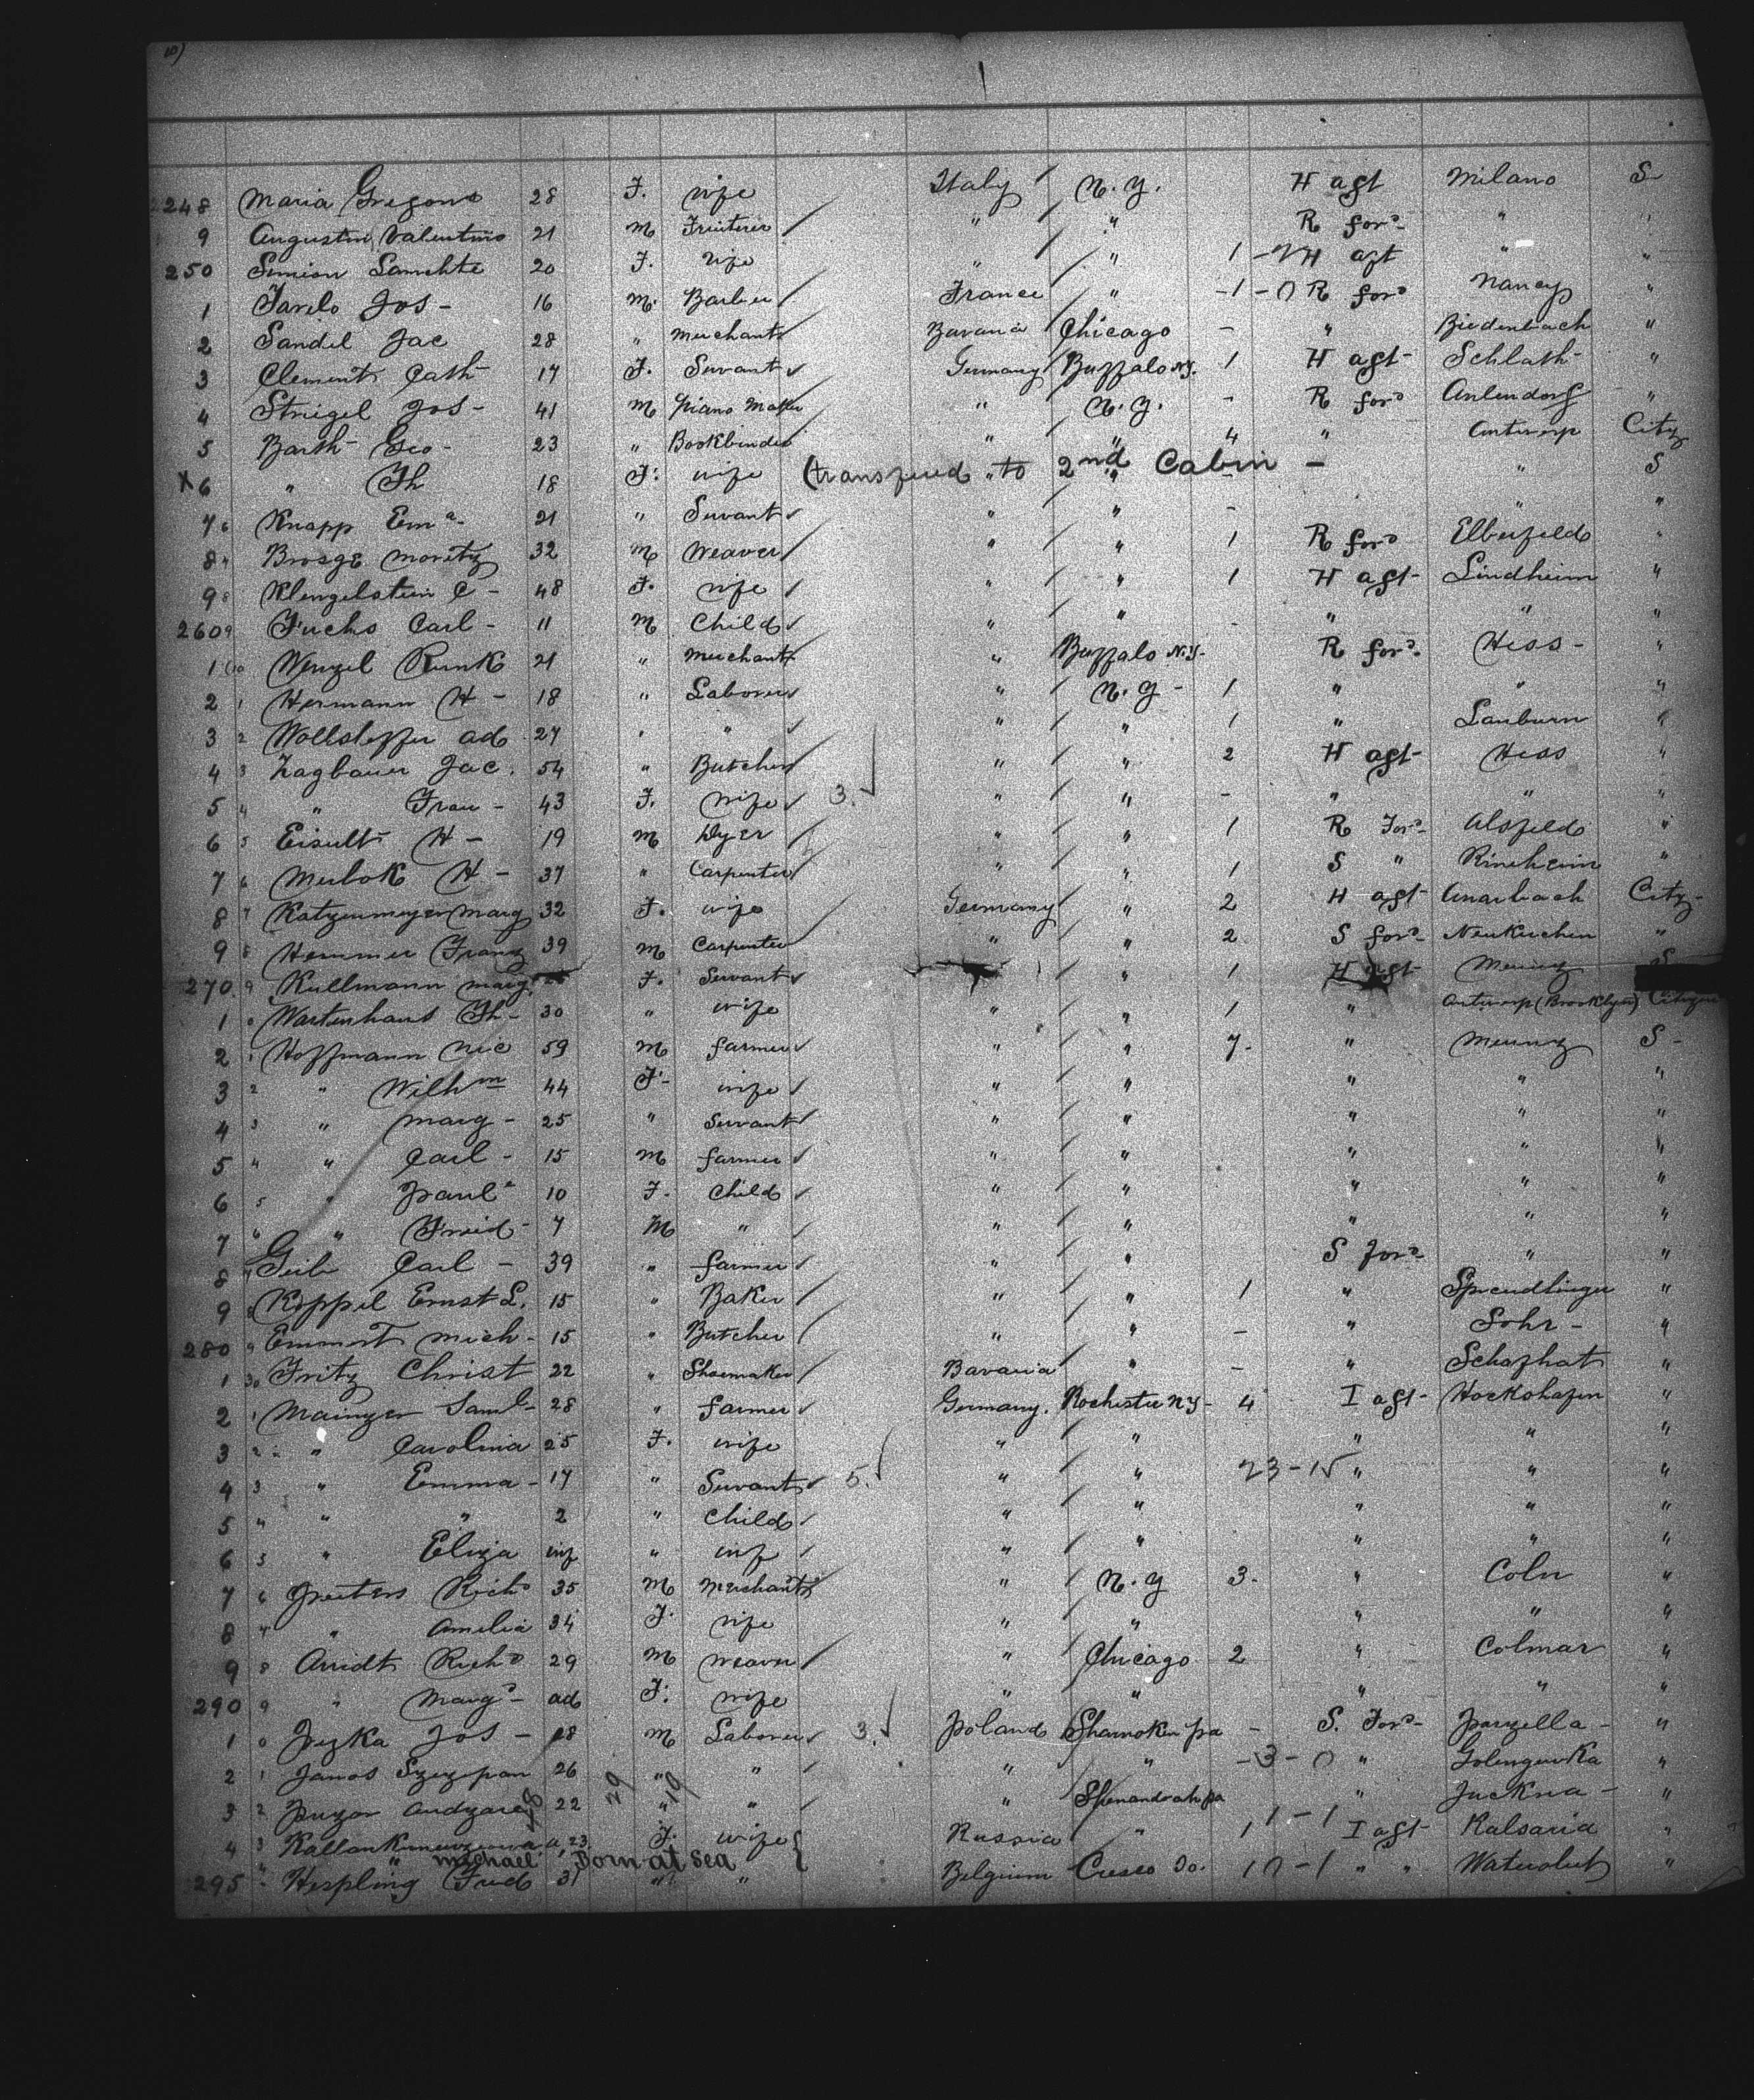 248 Maria Gregono 28 F. wife Italy N.Y. H aft Milano S
9 Augustin Valentino 21 M Fruiterer " " R for'd " "
250 Simion 20 F. wife " " 1 H aft " "
1 Jos - 16 M. Barber France " - 1 - 0 R for'd Nancy "
2 Sandel Jac 28 " Merchant Bavaria Chicago - " Biedenbach "
3 Clement Cath 17 F. Servant Germany Buffalo N.Y. 1 H aft - Schlath - "
4 Striegel Jos - 41 M piano Maker " N.Y. - R for'd Anlendorf "
5 Barth - Geo - 23 " Bookbinder " " 4 " Antwerp City
X 6 " Th 18 F. wife (transfered to 2nd Cabin - " S
7 6 Knapp Em a - 21 " Servant " " - " "
8 7 Brosge Moritz 32 M Weaver " " 1 R for'd Elberfeld "
9 8 Klengelstein C - 48 F. wife " " 1 H aft - Lindheim "
260 9 Fuchs Carl - 11 M Child " " - " " "
1 60 Wenzel Runk 21 " Merchant " Buffalo N.Y. - R for'd Hess - "
2 1 Hermann H - 18 " Laborer " N.Y - 1 " " "
3 2 Wollshoffer ad 27 " " " " 1 " Lauburn "
4 3 Zagbauer Jac. 54 " Butcher " " 2 H aft - Hess "
5 4 " Frau - 43 F. wife 3. " " - " " "
6 5 Eisult H - 19 M Dyer " " 1 R For'd - Alsfeld "
7 6 Merbok H - 37 " Carpenter " " 1 S " Rinsheim "
8 7 Katzenmeyer Marg 32 F. wife Germany " 2 H aft - Anarbach City -
9 8 Hemmer Franz 39 M Carpenter " " 2 S for'd - Neukirchen "
270. 9 Kullmann Marg. F. Servant " " 1 H aft - S
1 0 Wartenhans Th - 30 " wife " " 1 " Antwerp (Brooklyn) Citizen
2 1 Hoffmann Nic 59 M farmer " " 7 - " S -
3 2 " Wilhm 44 F - wife " " " " "
4 3 " Marg - 25 " Servant " " " " "
5 4 " Carl - 15 M farmer " " " " "
6 5 " Paula 10 F - Child " " " " "
7 6 " Freid - 7 M " " " " " "
8 7 Geib Carl - 39 " farmer " " S for'd - " "
9 8 Koppel Ernst L. 15 " Baker " " 1 " Sprendlingen "
280 9 Emmert Mich - 15 " Butcher " " - " Sohr - "
1 30 Fritz Christ 22 " Shoemaker Bavaria " - " Schafhat "
2 1 Mainzer Saml - 28 " farmer Germany. Rochester N Y - 4 I aft - Hockshafen "
3 2 " Carolina 25 F. wife " " " " "
4 3 " Emma - 17 " Servant 5. " " 23 - 15 " " "
5 4 " " 2 " Child " " " " "
6 5 " Eliza inf " inf " " " " "
7 6 Peiters Rich'd 35 M Merchant " N.Y 3 - " Coln "
8 7 " Amelia 34 F. wife " " " " "
9 8 Arndt Rich'd 29 M weaver " Chicago 2 " Colmar "
290 9 " Marg'd - ad F. wife " " " " "
1 0 Jos - 18 M Laborer 3. Poland Shamokin Pa - S. For'd - "
2 1 Janos Szczepan 26 " " " " - 3 - 0 " "
3 2 22 " " " Shenandoah Pa " Juckna - "
29 19
4 3 23. F. wife Russia " 1 1 - 1 I aft - Kalsaria "
" Michael Born at sea
295 " Hespling Fred 31 " " Belgium Cresco Io. 1 0 - 1 " " "